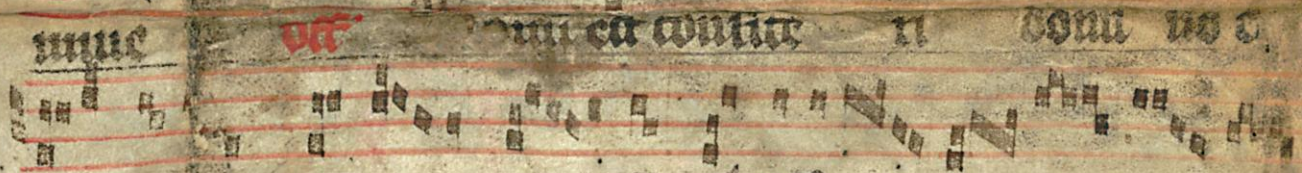 off' Bonum est confite ri domi no